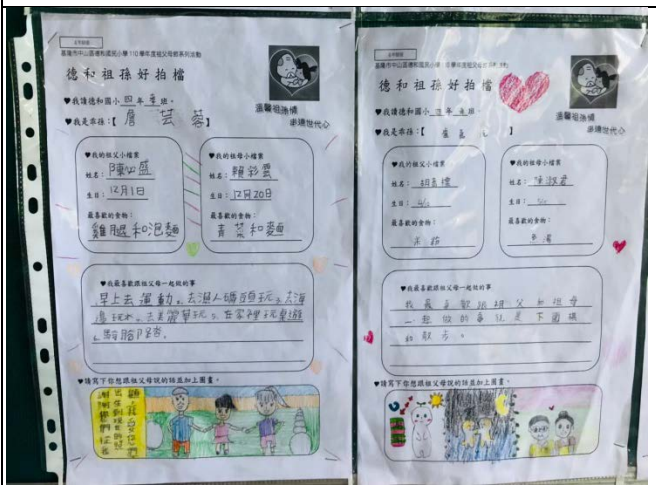 基隆市中山區德和國民小學110學年度祖父母節系列活動
德和祖孫好拍檔
溫馨祖孫情
串連世代心
♥我讀德和國小 四 年 壹 班。
♥我是乖孫:【 詹芸蓉 】
♥我的祖父小檔案
姓名:
生日: 12月1日
最喜歡的食物:
雞腿和泡麵
♥我的祖母小檔案
姓名: 賴彩雲
生日: 12月20日
最喜歡的食物:
青菜和麵
♥我最喜歡跟祖父母一起做的事
早上去運動。去漁人碼頭玩。去海
邊玩水。去美麗華玩。在家裡玩桌遊
、騎腳踏車。
♥請寫下你想跟祖父母說的話並加上圖畫。
德和祖孫好拍檔
溫馨祖孫情
串連世代心
♥我讀德和國小 四 年 班。
♥我是乖孫:【 】
♥我的祖父小檔案
姓名:
生日:
最喜歡的食物:
♥我的祖母小檔案
姓名:
生日:
最喜歡的食物:
♥我最喜歡跟祖父母一起做的事
我最喜歡跟祖父和祖母
一起做的事就是下圍棋
和散步。
♥請寫下你想跟祖父母說的話並加上圖畫。